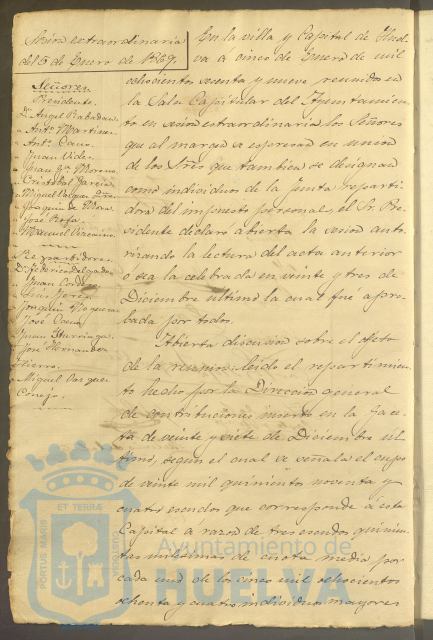 Sesion extraordinaria
del 5 de Enero de 1869.
Señores
Presidente.
D. Angel Rabadan
" Antº Martinez
" Antº Cano
" Juan Vides
" Juan Mª Moreno
" Cristobal Garcia
" Miguel Vazquez
" Joaquin de Mora
" José Rosa
" Manuel Vizcaino
Repartidores
D. Federico Delgado
" Juan Cordero
" Luis Perez
" Joaquin Noguera
" José Cano
" Juan Iturriaga
" José Hernandez
Fierro
" Miguel Vazquez
Cinejo
En la villa y Capital de Huel-
va a cinco de Enero de mil
ochocientos sesenta y nueve reunidos en
la Sala Capitular del Ayuntamien-
to en sesion extraordinaria los Señores
que al margen se espresan en union
de los Sres que tambien se designan
como individuos de la Junta reparti-
dora del impuesto personal, el Sr. Pre-
sidente declaro abierta la sesion auto-
rizando la lectura del acta anterior
o sea la celebrada en veinte y tres de
Diciembre ultimo la cual fue apro-
bada por todos.
Abierta discusion sobre el objeto
de la reunion, leido el repartimien-
to hecho por la Direccion general
de contribuciones inserto en la Gace-
ta de veinte y siete de Diciembre ul-
timo, segun el cual se señala el cupo
de veinte mil quinientos noventa y
cuatro escudos que corresponde á esta
Capital á razon de tres escudos quinien-
tas milésimas de cuota media por
cada uno de los cinco mil ochocientos
ochenta y cuatro individuos mayores
PORTUS MARIS ET TERRAE CUSTODIA
Ayuntamiento de
HUELVA